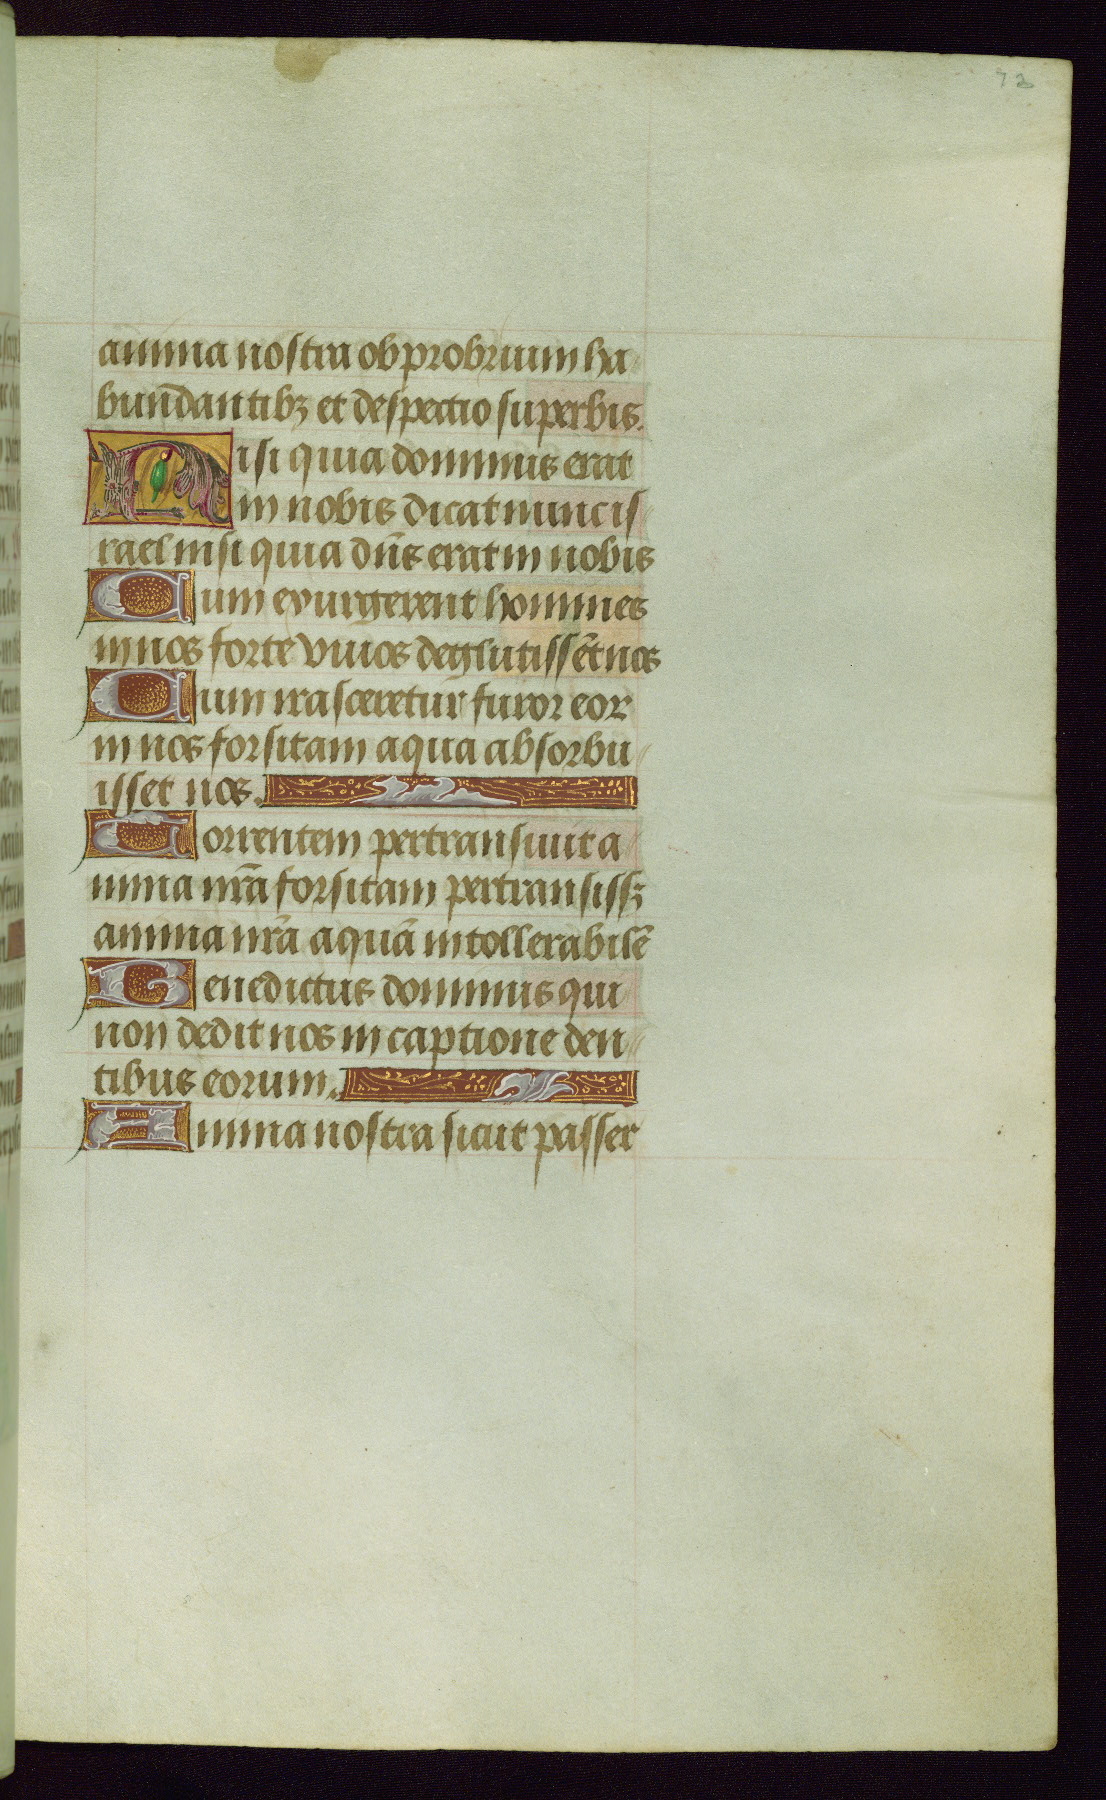 73
anima nostra obprobrium ha
bundantibꝫ et despectio superbis.
Nisi quia dominus erat
in nobis dicat nunc is
rael nisi quia dn̄s erat in nobis
Cum exurgerent homines
in nos forte viuos deglutissēt nos
Cum irasceretur furor eoꝝ
in nos forsitam aqua absorbu
isset nos.
Torrentem pertransiuit a
nima nr̄a forsitam pertransissꝫ
anima nr̄a aquā intollerabilē
Benedictus dominus qui
non dedit nos in captione den
tibus eorum.
Anima nostra sicut passer